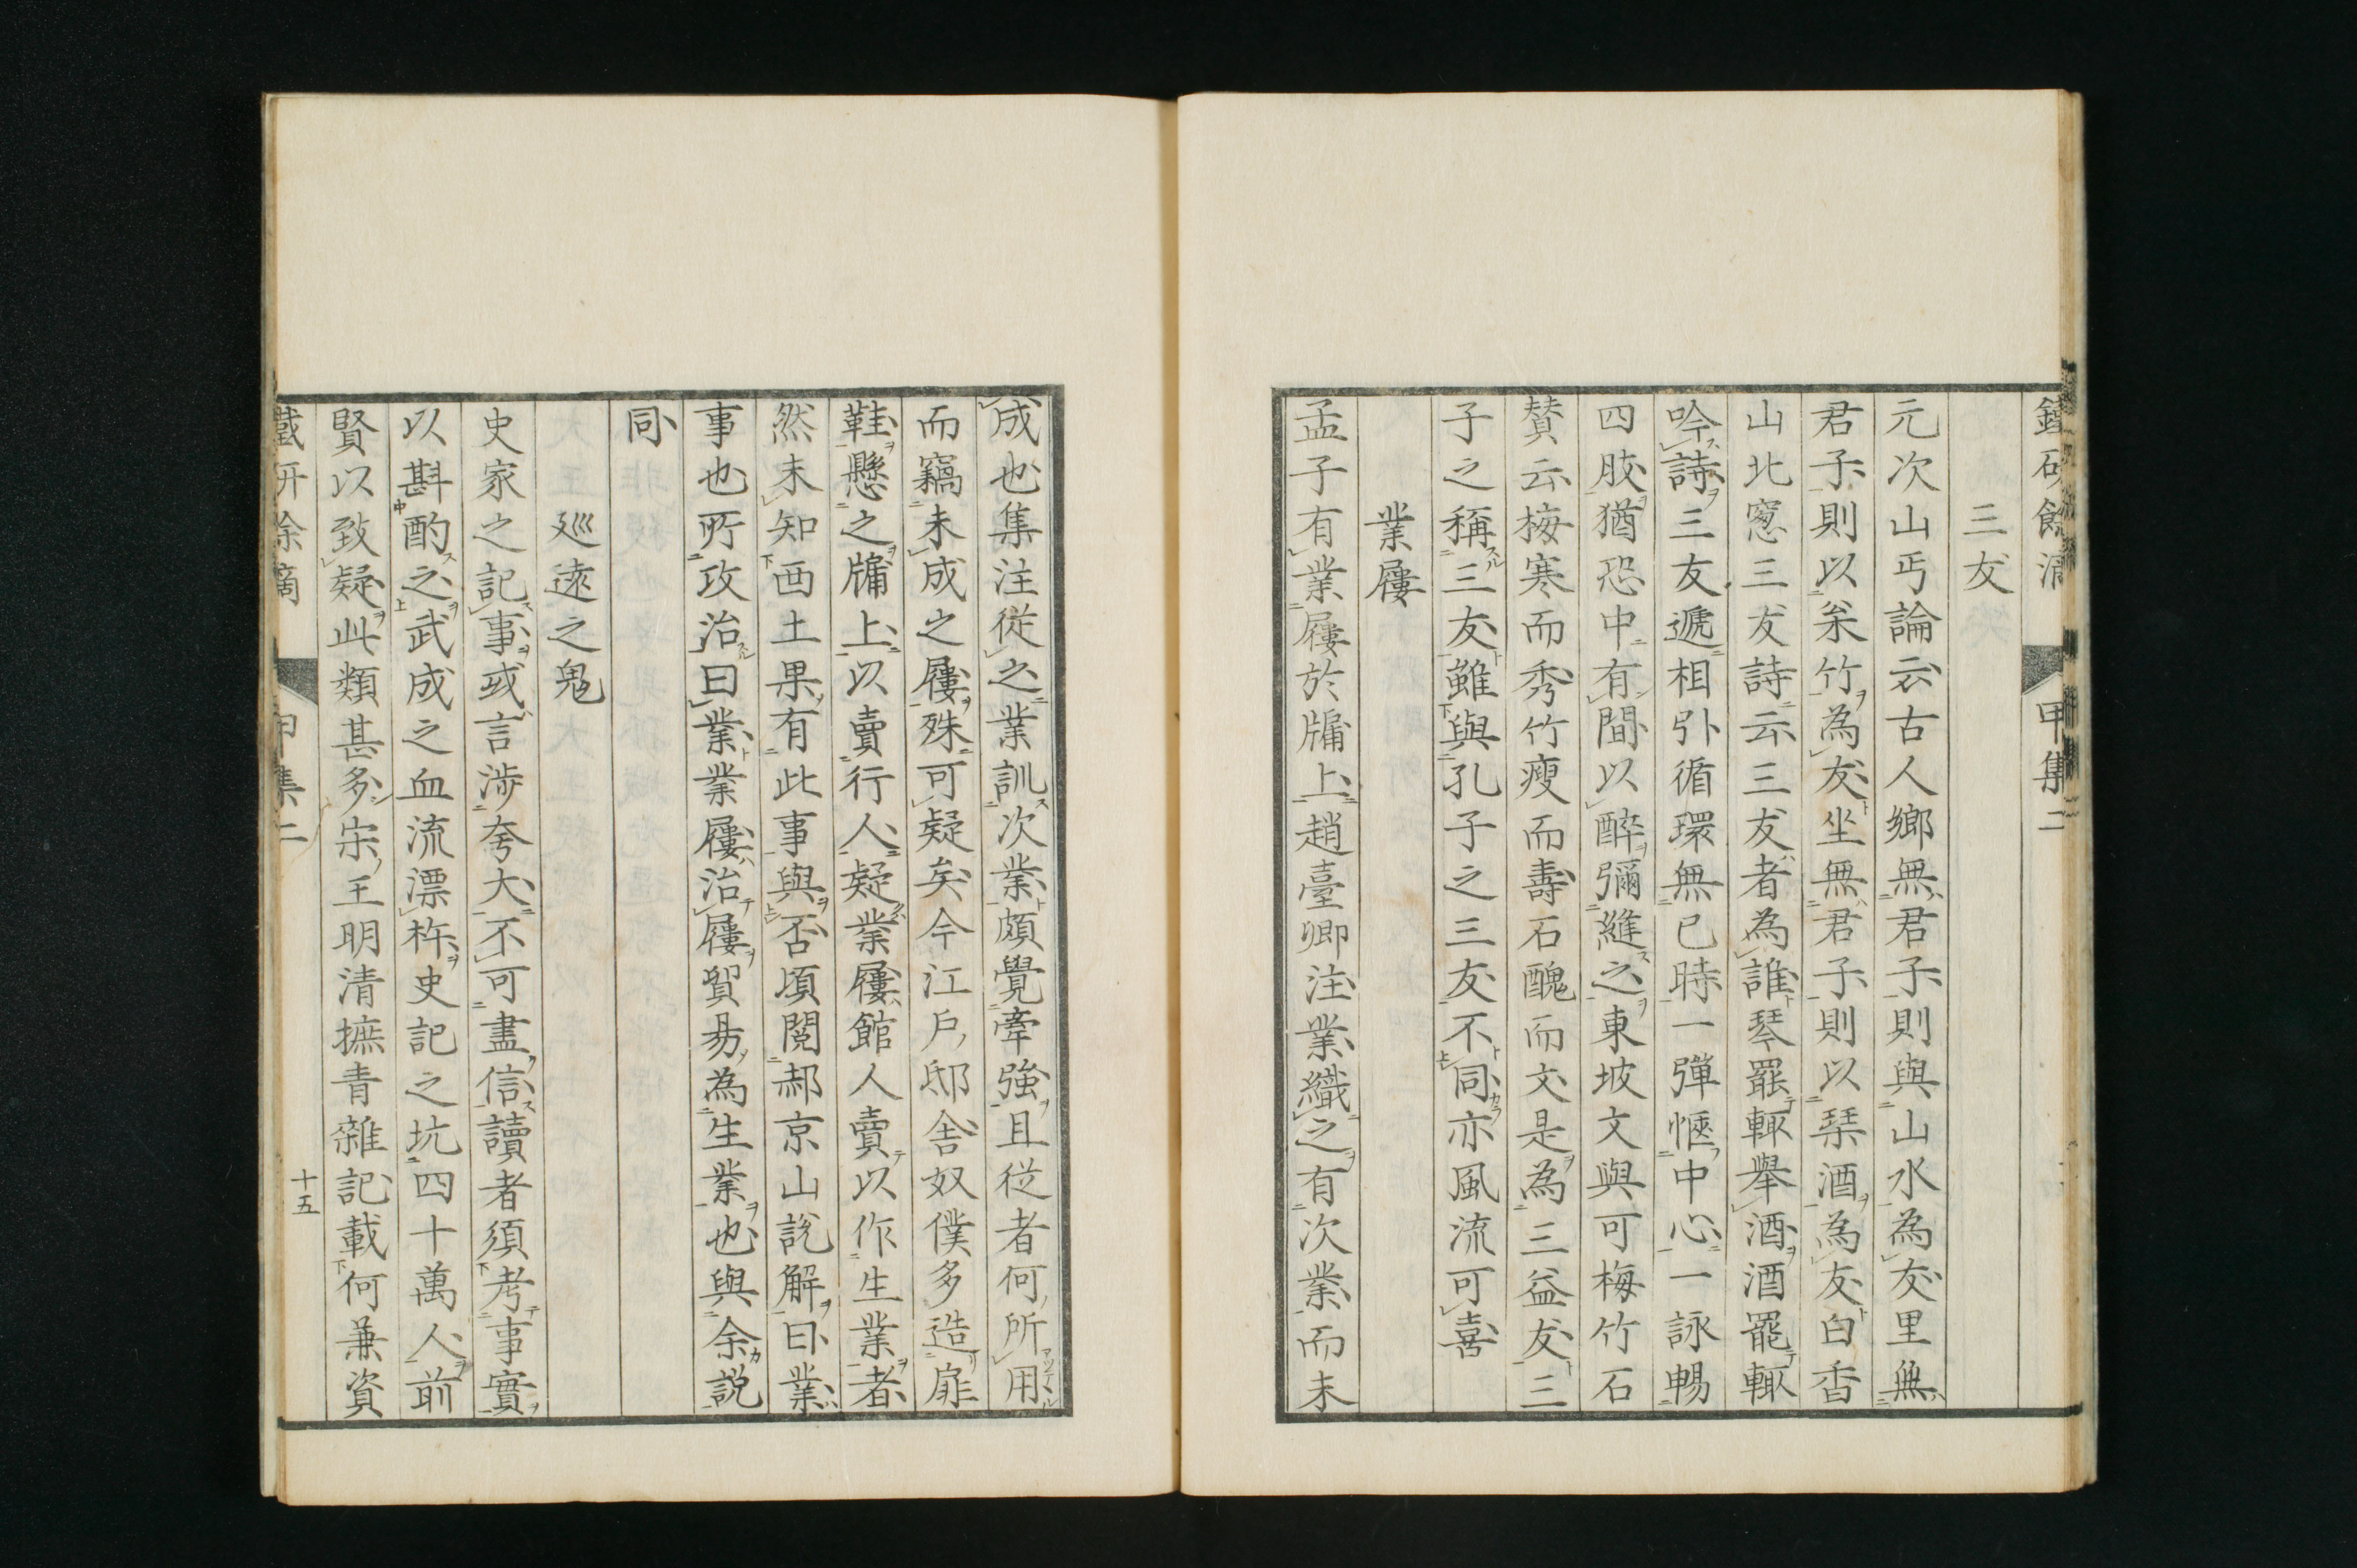 三友
元次山丐論云古人鄉無君子則與山水為友里無
君子則以松竹為友坐無君子則以琴酒為友白香
山北窓三友詩云三友者為誰琴罷輒舉酒酒罷輒
吟詩三友遞相引循環無已時一彈愜中心一詠暢
四肢猶恐中有間以醉彌縫之東坡文與可梅竹石
賛云梅寒而秀竹瘦而壽石醜而文是為三益友三
子之稱三友雖與孔子之三友不同亦風流可喜
業屨
孟子有業屨於牖上趙臺卿注業織之有次業而未
成也集注從之業訓次業頗覺牽強且從者何所用
而竊未成之屨殊可疑矣今江戶邸舍奴僕多造扉
鞋懸之牖上以賣行人疑業屨館人賣以作生業者
然未知西土果有此事與否頃閲郝京山說解曰業
事也所攻治曰業業屨治屨貿易為生業也與余説
同
廵遠之鬼
史家之記事或言涉夸大不可盡信讀者須考事實
以斟酌之武成之血流漂杵史記之坑四十萬人前
賢以致疑此類甚多宋王明清摭青雜記載何兼資
甲集二
十五